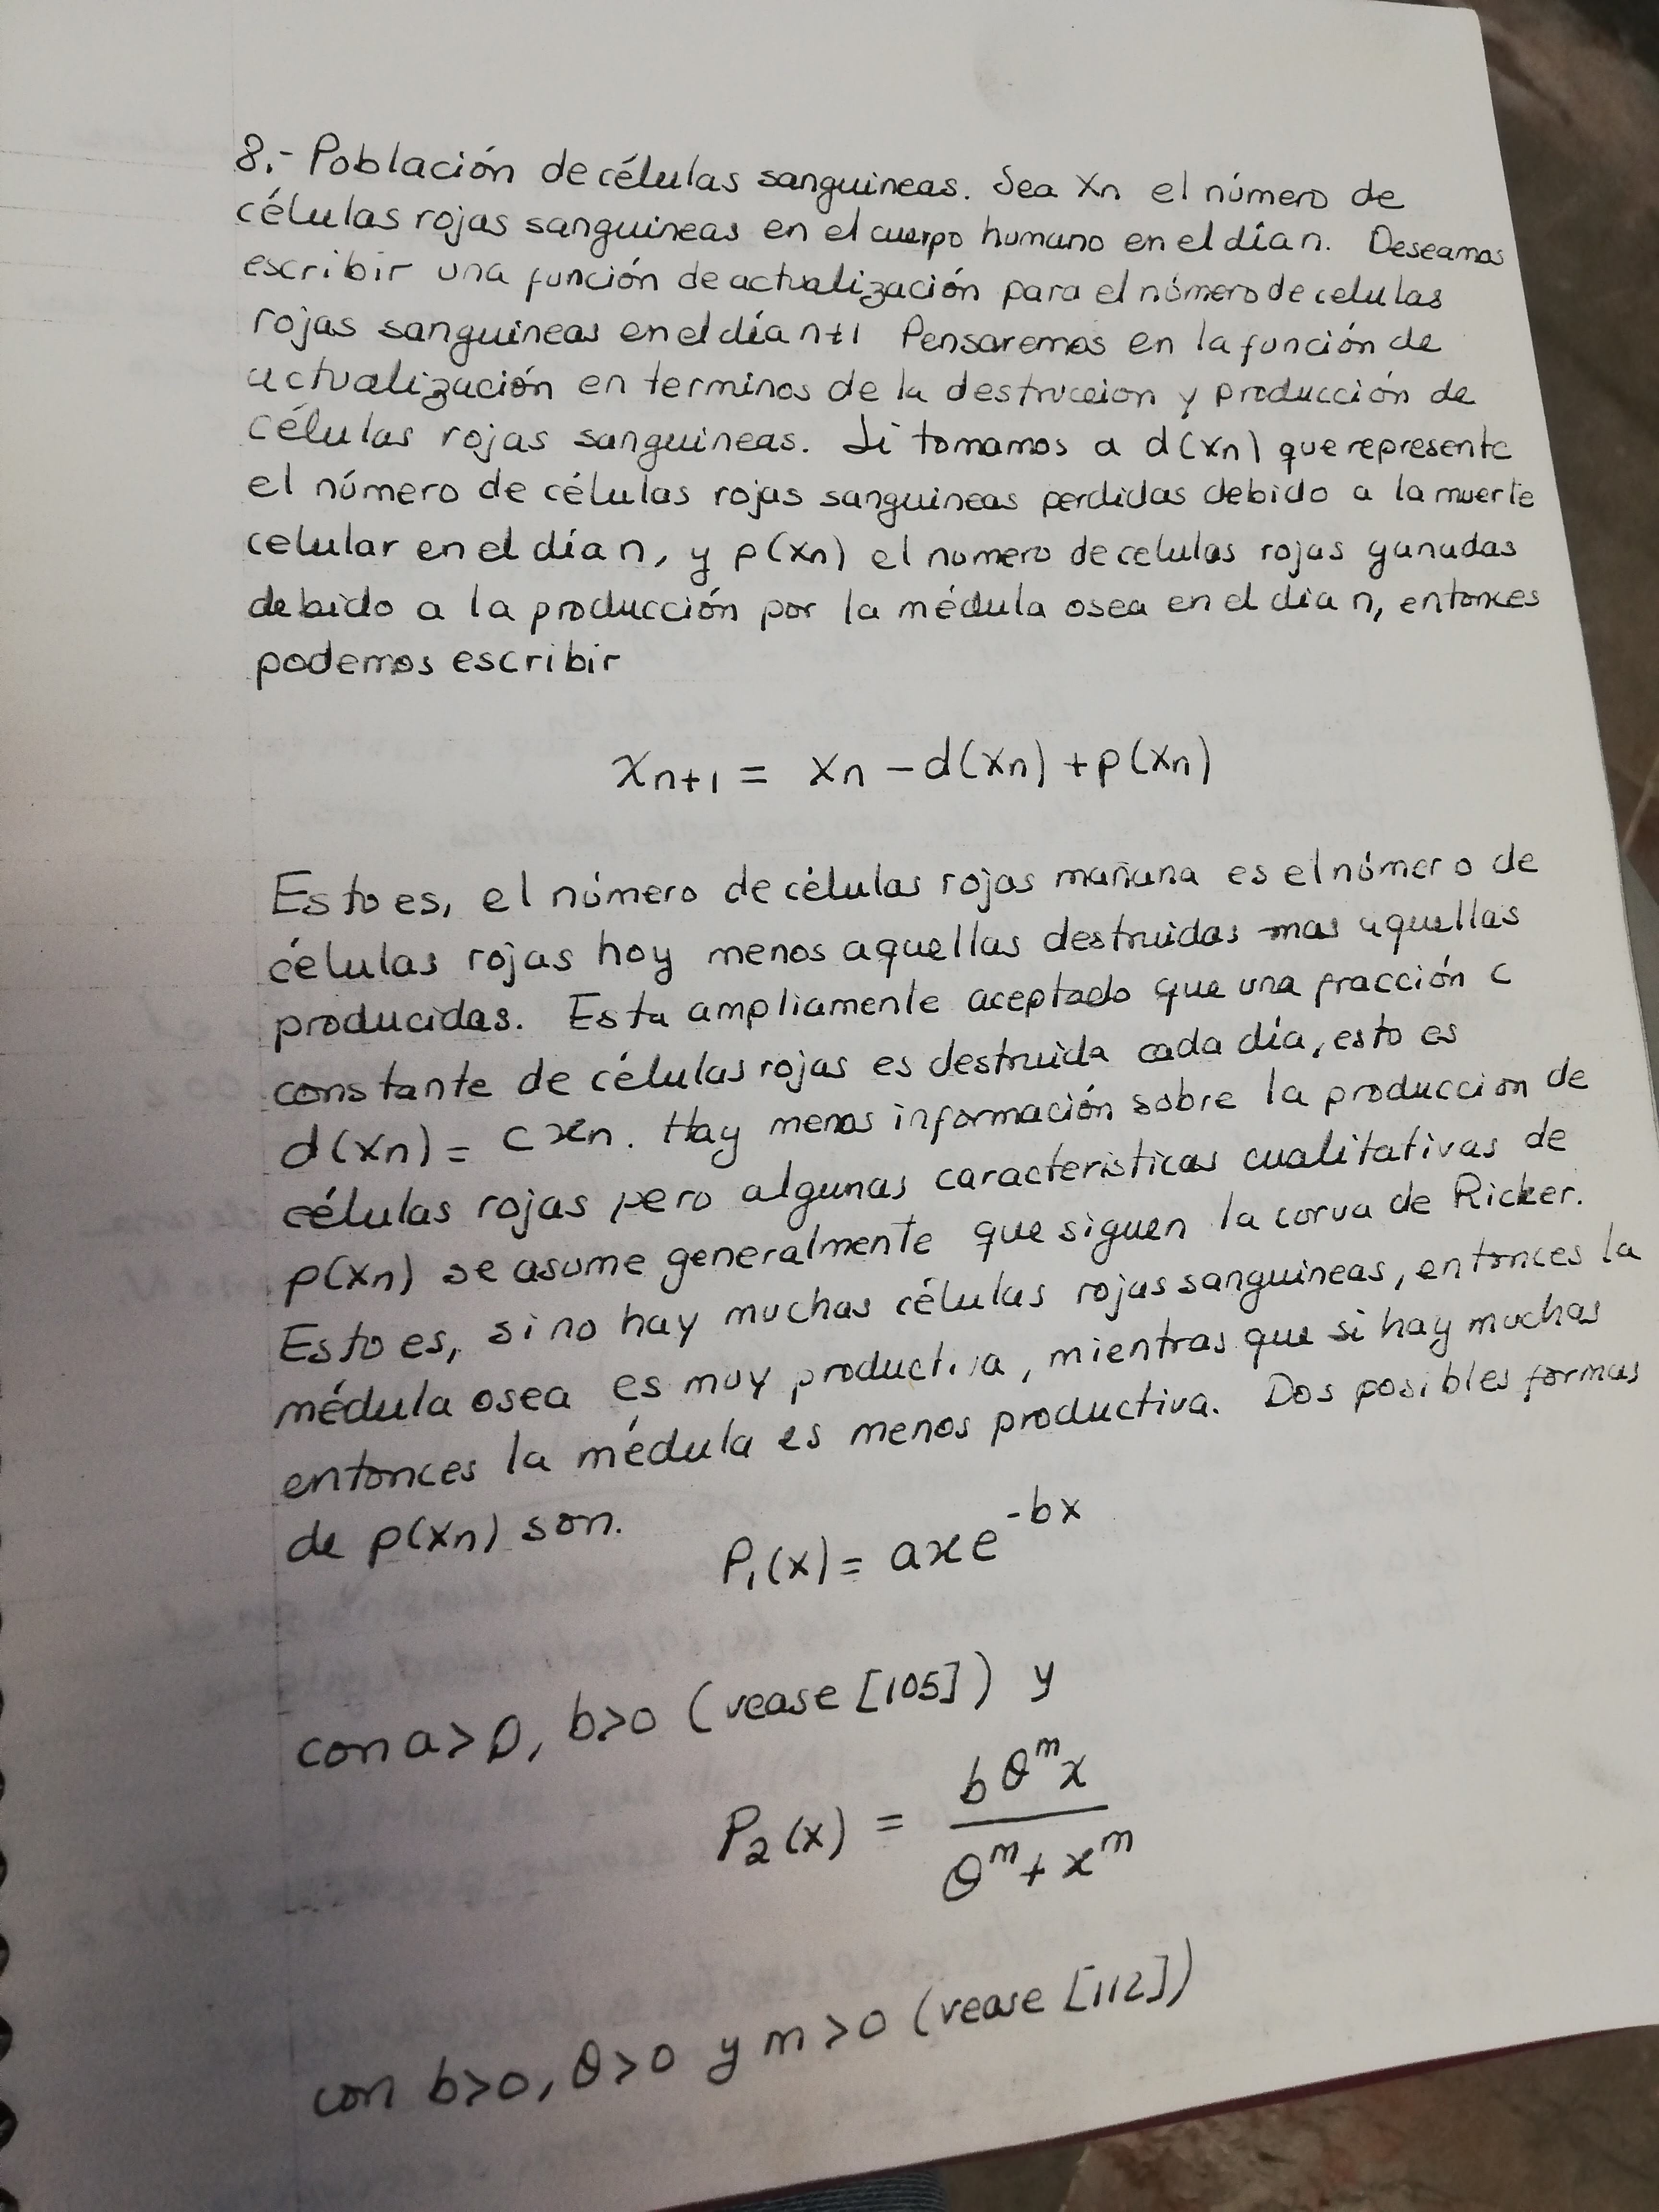 8.- Población de células sanguineas. Sea xn el número de
células rojas sanguineas en el cuerpo humano en el día n. Deseamos
escribir una función de actualización para el número de celulas
rojas sanguineas en el día n+1 Pensaremos en la función de
actualización en terminos de la destruccion y producción de
células rojas sanguineas. Si tomamos a d(xn) que represente
el número de células rojas sanguineas perdidas debido a la muerte
celular en el día n, y p(xn) el numero de celulas rojas ganadas
debido a la producción por la médula osea en el dia n, entonces
podemos escribir
xn+1 = xn - d(xn) + p(xn)
Esto es, el número de células rojas mañana es el número de
células rojas hoy menos aquellas destruidas mas aquellas
producidas. Esta ampliamente aceptado que una fracción c
constante de células rojas es destruida cada día, esto es
d(xn) = cxn. Hay menos información sobre la produccion de
células rojas pero algunas caracteristicas cualitativas de
p(xn) se asume generalmente que siguen la corva de Ricker.
Esto es, si no hay muchas células rojas sanguineas, entonces la
médula osea es muy productiva, mientras que si hay muchas
entonces la médula es menos productiva. Dos posibles formas
de p(xn) son.
P₁(x) = axe^{-bx}
con a>0, b>0 (vease [105]) y
P₂(x) = \frac{bθ^m x}{θ^m + x^m}
con b>0, θ>0 y m>0 (vease [112])